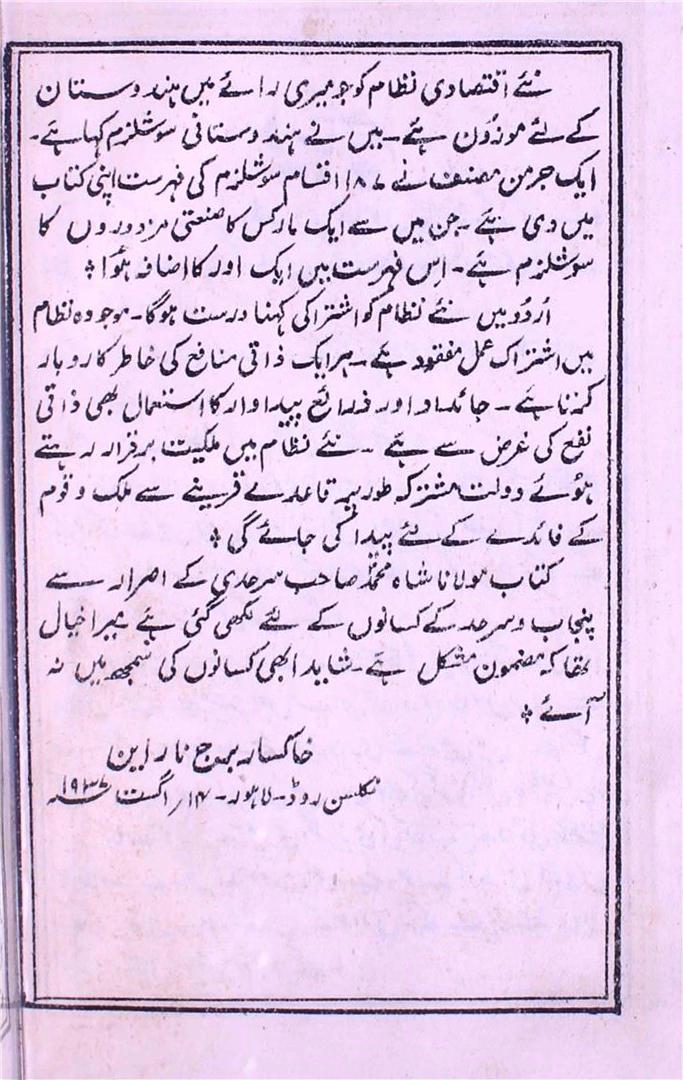 نئے اقتصادی نظام کو جو میری رائے میں ہندوستان
کے لئے موزوں ہے۔ میں نے ہندوستانی سوشلزم کہا ہے۔
ایک جرمن مصنف نے ۱۱۸۷ اقسام سوشلزم کی فہرست اپنی کتاب
میں دی ہے۔ جن میں سے ایک مارکس کا صنعتی مزدوروں کا
سوشلزم ہے۔ اِس فہرست میں ایک اور کا اضافہ ہؤا ؞
اُردُو میں نئے نظام کو اشتراکی کہنا درست ہوگا۔ موجودہ نظام
میں اشتراک عمل مفقود ہے۔ ہر ایک ذاتی منافع کی خاطر کاروبار
کرتا ہے۔ جائداد اور ذرائع پیداوار کا استعمال بھی ذاتی
نفع کی غرض سے ہے۔ نئے نظام میں ملکیت برقرار رہتے
ہوئے دولت مشترکہ طور پر قاعدے قرینے سے ملک و قوم
کے فائدے کے لئے پیدا کی جائے گی ؞
کتاب مولانا شاہ محمدؐ صاحب سرحدی کے اصرار سے
پنجاب و سرحد کے کسانوں کے لئے لکھی گئی ہے میرا خیال
تھا کہ مضمون مشکل ہے۔ شاید ابھی کسانوں کی سمجھ میں نہ
آئے ؞
خاکسار برج نارائن
نکلسن روڈ۔ لاہور۔ ۱۴؍ اگست ۱۹۳۷ء